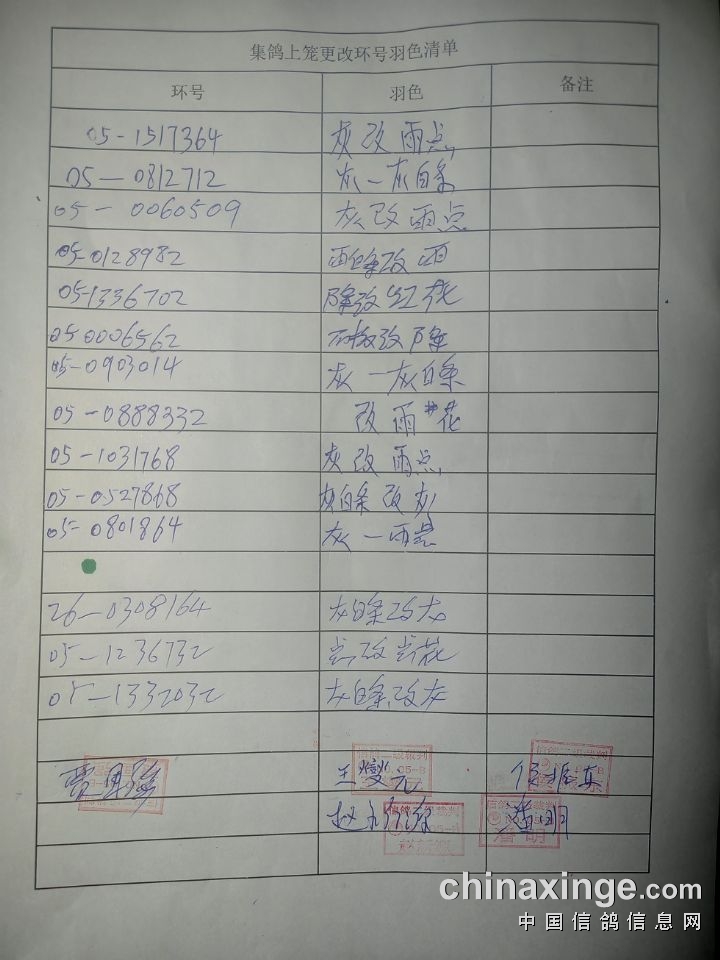 集鸽上笼更改环号羽色清单
环号 羽色 备注
05-1517364 灰改雨点
05-0812712 灰-灰白条
05-0060509 灰改雨点
05-0128982 雨白条改雨
05-1336702 绛改红花
05-0006562 改绛
05-0903014 灰-灰白条
05-0888332 改雨花
05-1031768 灰改雨点
05-0527868 灰白条改灰
05-0801864 灰-雨点
26-0308164 灰白条改灰
05-1236732 改花
05-1332032 灰白条改灰
信鸽二级裁判
信鸽二级裁判
王燮元
赵
潘明
chinaxinge.com
中国信鸽信息网